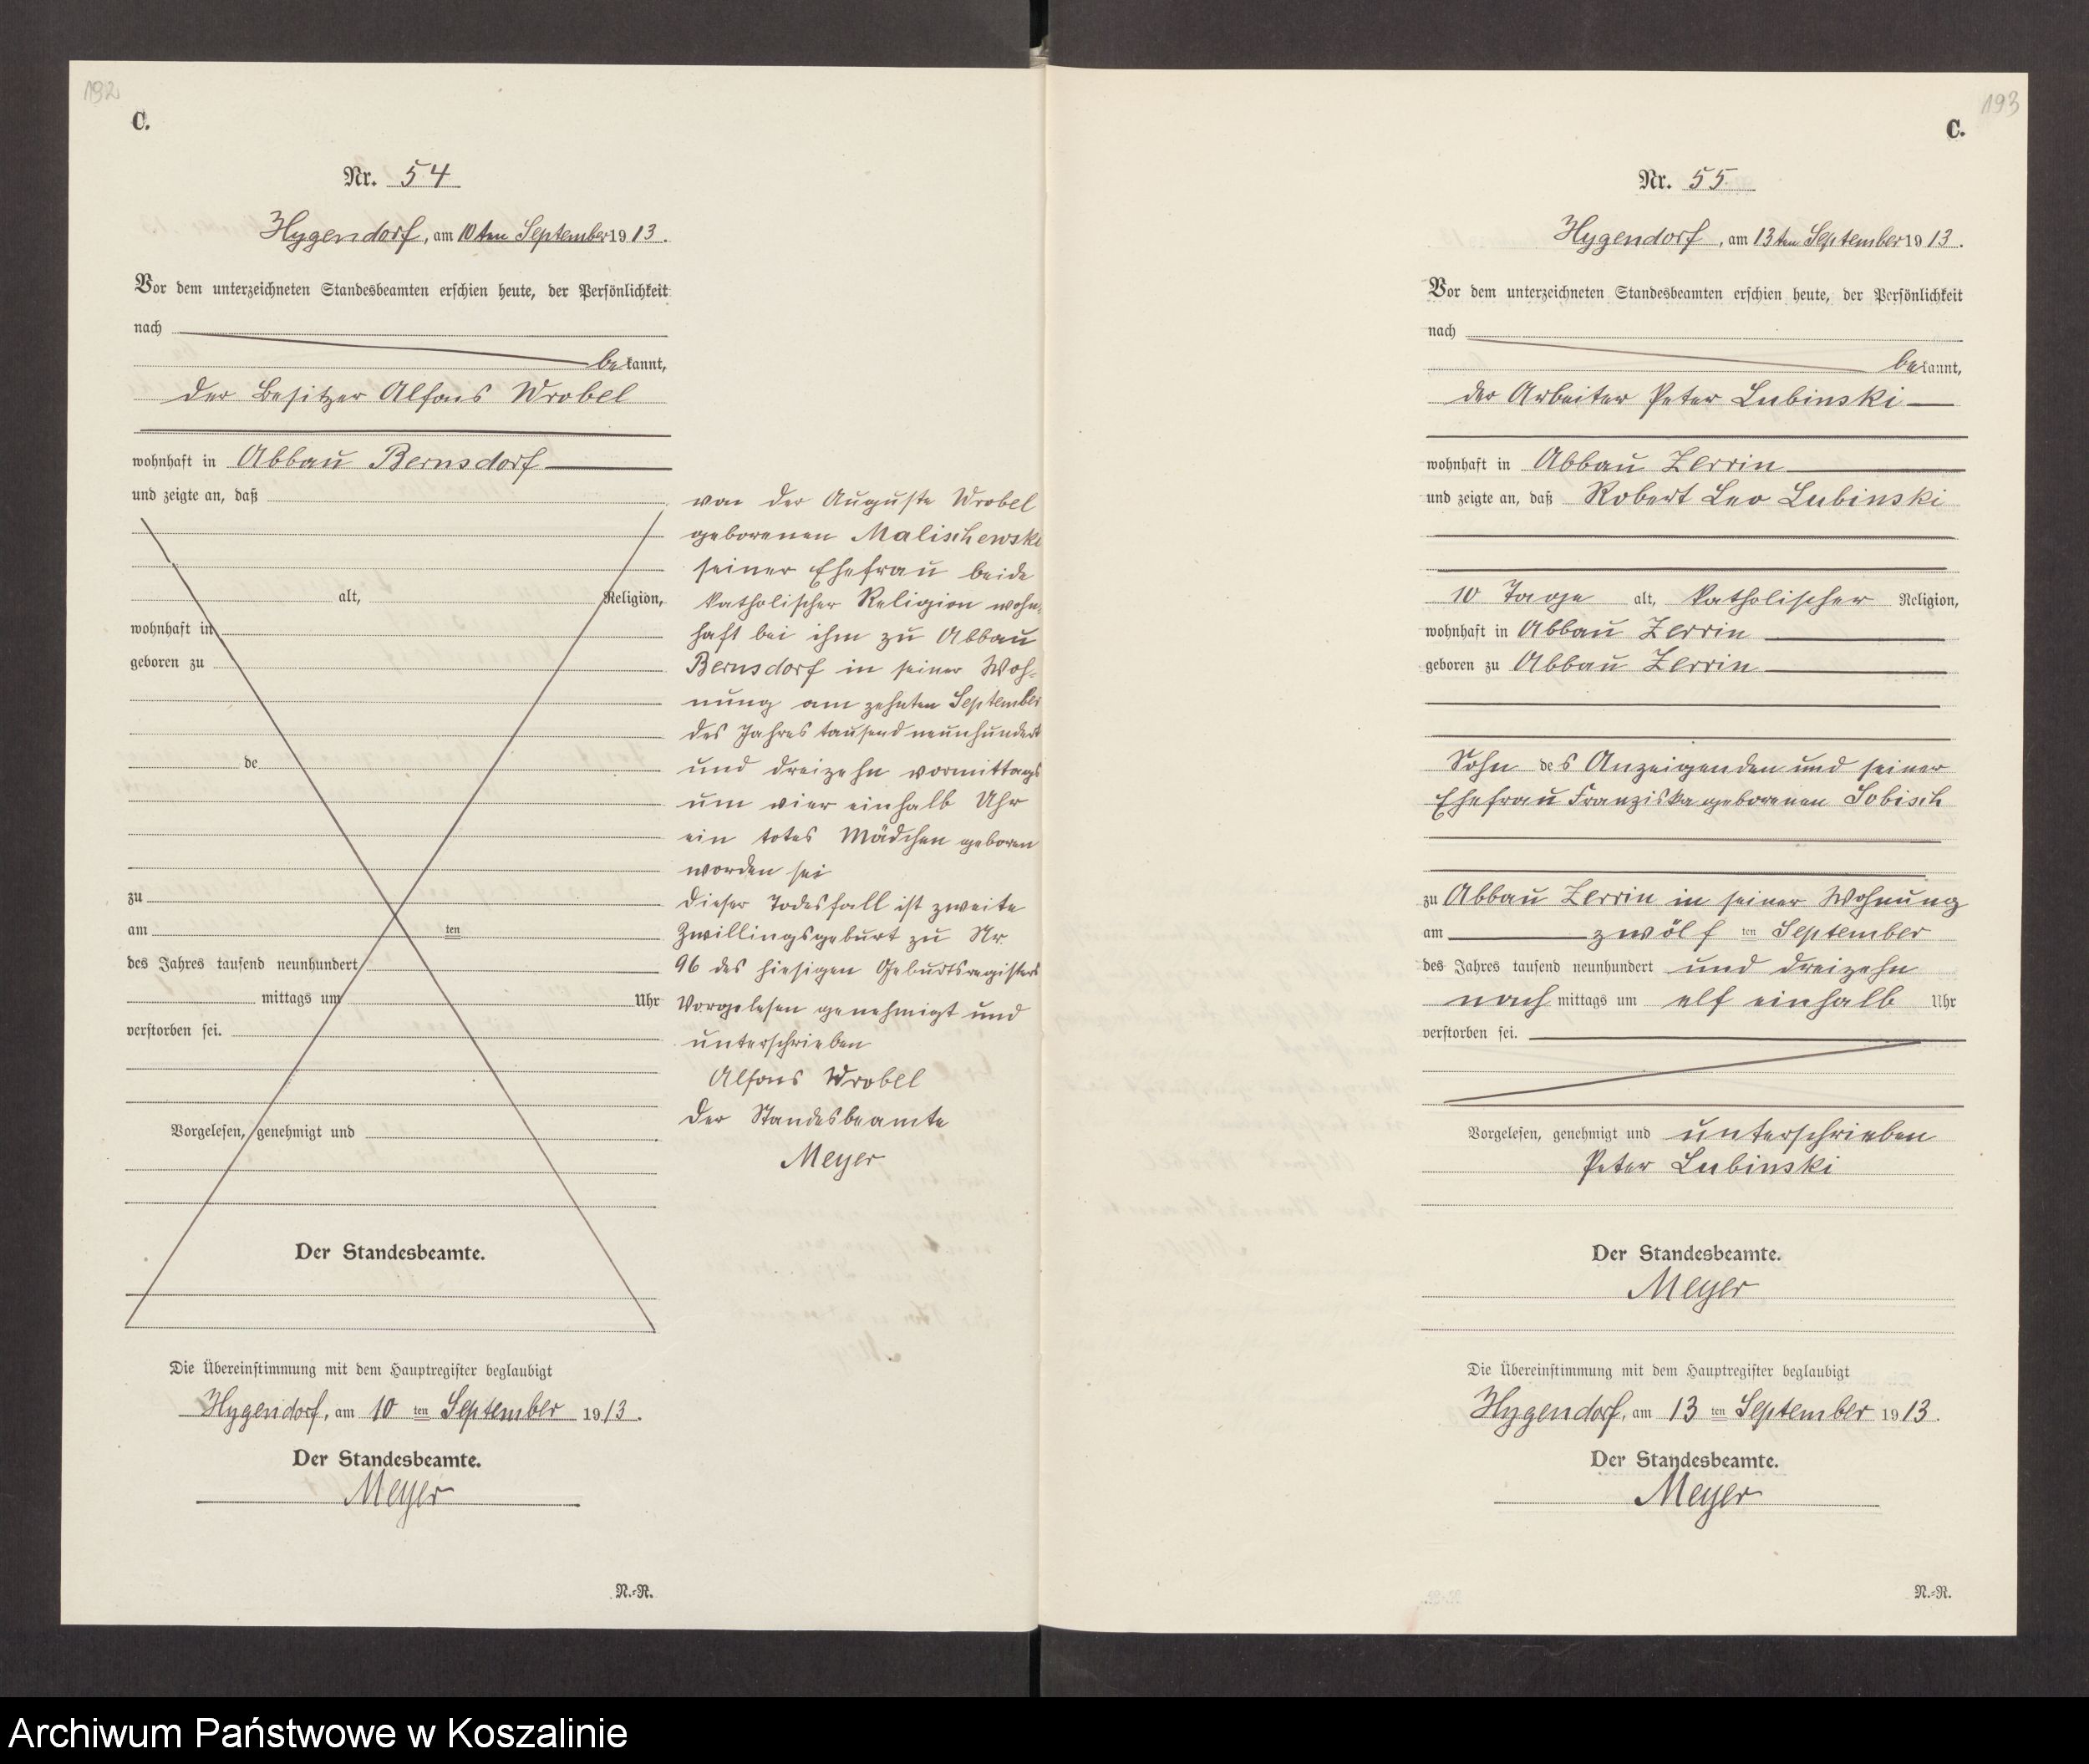 192
C.
Nr. 54
Hygendorf, am 10ten September 1913.
Vor dem unterzeichneten Standesbeamten erschien heute, der Persönlichkeit
nach
bekannt,
der Besitzer Alfons Wrobel
wohnhaft in Abbau Bernsdorf
und zeigte an, daß
alt, Religion,
wohnhaft in
geboren zu
de
zu
am ten
des Jahres tausend neunhundert
mittags um Uhr
verstorben sei.
Vorgelesen, genehmigt und
Der Standesbeamte.
von der Auguste Wrobel
geborenen Malischewski
seiner Ehefrau beide
katholischer Religion wohn-
haft bei ihm zu Abbau
Bernsdorf in seiner Woh-
nung am zehnten September
des Jahres tausend neunhundert
und dreizehn vormittags
um vier einhalb Uhr
ein totes Mädchen geboren
worden sei
Dieser Todesfall ist zweite
Zwillingsgeburt zu Nr.
96 des hiesigen Geburtsregisters
Vorgelesen genehmigt und
unterschrieben
Alfons Wrobel
Der Standesbeamte
Meyer
Die Übereinstimmung mit dem Hauptregister beglaubigt
Hygendorf, am 10 ten September 1913.
Der Standesbeamte.
Meyer
N.-R.
193
C.
Nr. 55
Hygendorf, am 13ten September 1913.
Vor dem unterzeichneten Standesbeamten erschien heute, der Persönlichkeit
nach
bekannt,
der Arbeiter Peter Lubinski
wohnhaft in Abbau Zerrin
und zeigte an, daß Robert Leo Lubinski
10 Tage alt, katholischer Religion,
wohnhaft in Abbau Zerrin
geboren zu Abbau Zerrin
Sohn des Anzeigenden und seiner
Ehefrau Franziska geborenen Sobisch
zu Abbau Zerrin in seiner Wohnung
am zwölf ten September
des Jahres tausend neunhundert und dreizehn
nach mittags um elf einhalb Uhr
verstorben sei.
Vorgelesen, genehmigt und unterschrieben
Peter Lubinski
Der Standesbeamte.
Meyer
Die Übereinstimmung mit dem Hauptregister beglaubigt
Hygendorf, am 13 ten September 1913.
Der Standesbeamte.
Meyer
N.-R.
Archiwum Państwowe w Koszalinie